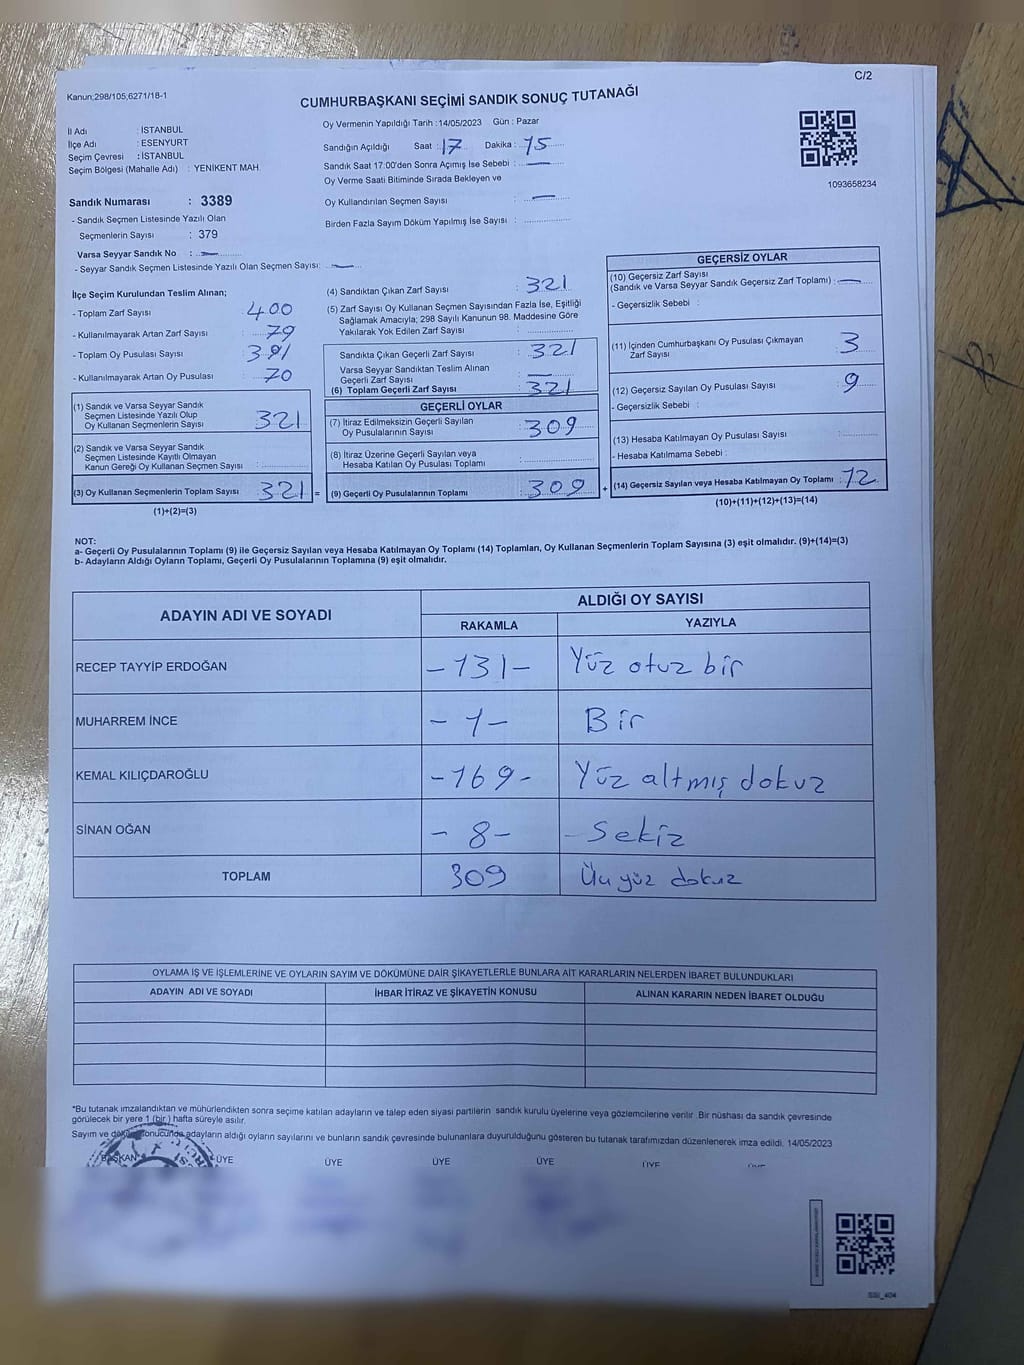 C/2
Kanun;298/105,6271/18-1
CUMHURBAŞKANI SEÇİMİ SANDIK SONUÇ TUTANAĞI
İl Adı : İSTANBUL
İlçe Adı : ESENYURT
Seçim Çevresi : İSTANBUL
Seçim Bölgesi (Mahalle Adı) : YENİKENT MAH.
Oy Vermenin Yapıldığı Tarih :14/05/2023 Gün : Pazar
Sandığın Açıldığı Saat : 17 Dakika : 15
Sandık Saat 17:00'den Sonra Açımış İse Sebebi : —
Oy Verme Saati Bitiminde Sırada Bekleyen ve
Oy Kullandırılan Seçmen Sayısı : —
Birden Fazla Sayım Döküm Yapılmış İse Sayısı :
1093658234
Sandık Numarası : 3389
- Sandık Seçmen Listesinde Yazılı Olan
Seçmenlerin Sayısı : 379
Varsa Seyyar Sandık No : —
- Seyyar Sandık Seçmen Listesinde Yazılı Olan Seçmen Sayısı: —
İlçe Seçim Kurulundan Teslim Alınan;
- Toplam Zarf Sayısı : 400
- Kullanılmayarak Artan Zarf Sayısı : 79
- Toplam Oy Pusulası Sayısı : 391
- Kullanılmayarak Artan Oy Pusulası : 70
(1) Sandık ve Varsa Seyyar Sandık
Seçmen Listesinde Yazılı Olup
Oy Kullanan Seçmenlerin Sayısı : 321
(2) Sandık ve Varsa Seyyar Sandık
Seçmen Listesinde Kayıtlı Olmayan
Kanun Gereği Oy Kullanan Seçmen Sayısı :
(3) Oy Kullanan Seçmenlerin Toplam Sayısı : 321 =
(1)+(2)=(3)
(4) Sandıktan Çıkan Zarf Sayısı : 321
(5) Zarf Sayısı Oy Kullanan Seçmen Sayısından Fazla İse, Eşitliği
Sağlamak Amacıyla; 298 Sayılı Kanunun 98. Maddesine Göre
Yakılarak Yok Edilen Zarf Sayısı :
Sandıkta Çıkan Geçerli Zarf Sayısı : 321
Varsa Seyyar Sandıktan Teslim Alınan
Geçerli Zarf Sayısı : —
(6) Toplam Geçerli Zarf Sayısı : 321
GEÇERLİ OYLAR
(7) İtiraz Edilmeksizin Geçerli Sayılan
Oy Pusulalarının Sayısı : 309
(8) İtiraz Üzerine Geçerli Sayılan veya
Hesaba Katılan Oy Pusulası Toplamı :
(9) Geçerli Oy Pusulalarının Toplamı : 309 +
GEÇERSİZ OYLAR
(10) Geçersiz Zarf Sayısı
(Sandık ve Varsa Seyyar Sandık Geçersiz Zarf Toplamı) : —
- Geçersizlik Sebebi :
(11) İçinden Cumhurbaşkanı Oy Pusulası Çıkmayan
Zarf Sayısı : 3
(12) Geçersiz Sayılan Oy Pusulası Sayısı : 9
- Geçersizlik Sebebi :
(13) Hesaba Katılmayan Oy Pusulası Sayısı :
- Hesaba Katılmama Sebebi :
(14) Geçersiz Sayılan veya Hesaba Katılmayan Oy Toplamı : 12
(10)+(11)+(12)+(13)=(14)
NOT:
a- Geçerli Oy Pusulalarının Toplamı (9) ile Geçersiz Sayılan veya Hesaba Katılmayan Oy Toplamı (14) Toplamları, Oy Kullanan Seçmenlerin Toplam Sayısına (3) eşit olmalıdır. (9)+(14)=(3)
b- Adayların Aldığı Oyların Toplamı, Geçerli Oy Pusulalarının Toplamına (9) eşit olmalıdır.
ADAYIN ADI VE SOYADI
ALDIĞI OY SAYISI
RAKAMLA YAZIYLA
RECEP TAYYİP ERDOĞAN -131- Yüz otuz bir
MUHARREM İNCE -1- Bir
KEMAL KILIÇDAROĞLU -169- Yüz altmış dokuz
SİNAN OĞAN -8- -Sekiz
TOPLAM 309 Üç yüz dokuz
OYLAMA İŞ VE İŞLEMLERİNE VE OYLARIN SAYIM VE DÖKÜMÜNE DAİR ŞİKAYETLERLE BUNLARA AİT KARARLARIN NELERDEN İBARET BULUNDUKLARI
ADAYIN ADI VE SOYADI İHBAR İTİRAZ VE ŞİKAYETİN KONUSU ALINAN KARARIN NEDEN İBARET OLDUĞU
*Bu tutanak imzalandıktan ve mühürlendikten sonra seçime katılan adayların ve talep eden siyasi partilerin sandık kurulu üyelerine veya gözlemcilerine verilir. Bir nüshası da sandık çevresinde
görülecek bir yere 1 (bir) hafta süreyle asılır.
Sayım ve döküm sonucunda adayların aldığı oyların sayılarını ve bunların sandık çevresinde bulunanlara duyurulduğunu gösteren bu tutanak tarafımızdan düzenlenerek imza edildi. 14/05/2023
BAŞKAN ÜYE ÜYE ÜYE ÜYE ÜYE
SSI_404